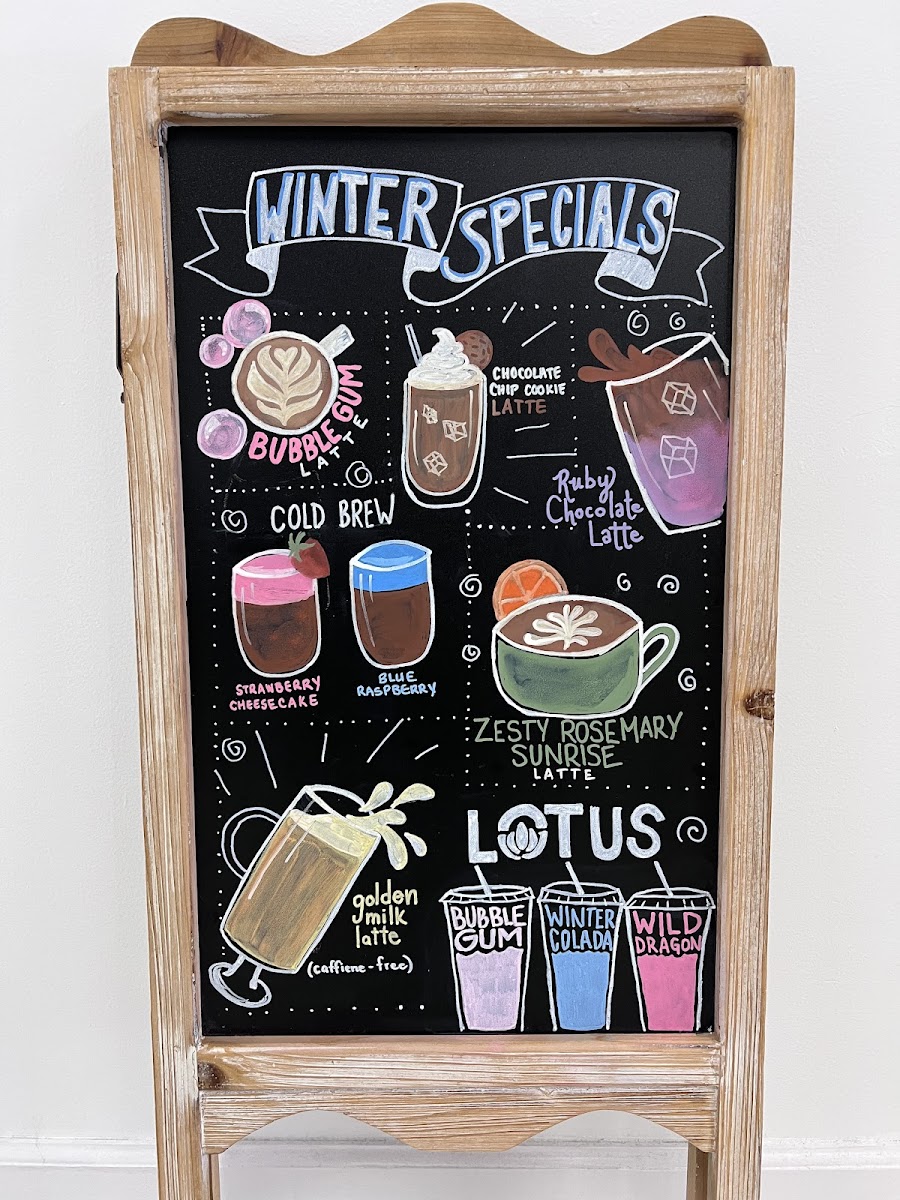 WINTER SPECIALS
BUBBLE GUM
LATTE
CHOCOLATE
CHIP COOKIE
LATTE
Ruby
Chocolate
Latte
COLD BREW
STRAWBERRY
CHEESECAKE
BLUE
RASPBERRY
ZESTY ROSEMARY
SUNRISE
LATTE
golden
milk
latte
(caffiene-free)
LOTUS
BUBBLE
GUM
WINTER
COLADA
WILD
DRAGON